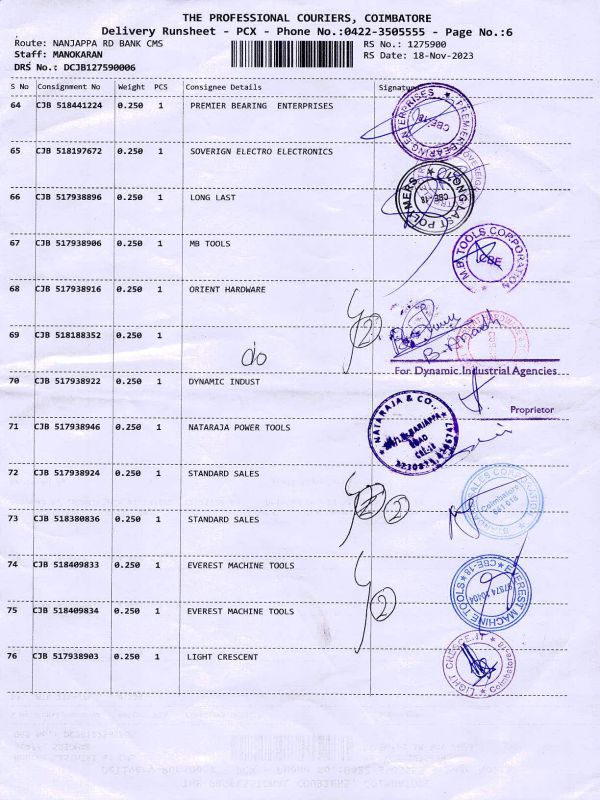 THE PROFESSIONAL COURIERS, COIMBATORE
Delivery Runsheet - PCX - Phone No.:0422-3505555 - Page No.:6
Route: NANJAPPA RD BANK CMS RS No.: 1275900
Staff: MANOKARAN RS Date: 18-Nov-2023
DRS No.: DCJB127590006
S No Consignment No Weight PCS Consignee Details Signature
64 CJB 518441224 0.250 1 PREMIER BEARING ENTERPRISES
PREMIER BEARING ENTERPRISES
CBE-18
65 CJB 518197672 0.250 1 SOVERIGN ELECTRO ELECTRONICS
66 CJB 517938896 0.250 1 LONG LAST
LONG LAST POLYMERS
CBE-18
67 CJB 517938906 0.250 1 MB TOOLS
M.B. TOOLS CORPORATION
CBE
68 CJB 517938916 0.250 1 ORIENT HARDWARE
2
69 CJB 518188352 0.250 1 do
For Dynamic Industrial Agencies
70 CJB 517938922 0.250 1 DYNAMIC INDUST
Proprietor
71 CJB 517938946 0.250 1 NATARAJA POWER TOOLS
NATARAJA & CO.,
NANJAPPA
ROAD
CBE-18
72 CJB 517938924 0.250 1 STANDARD SALES
2 2
SALES CORPORATION
Coimbatore
641 018
73 CJB 518380836 0.250 1 STANDARD SALES
74 CJB 518409833 0.250 1 EVEREST MACHINE TOOLS
EVEREST MACHINE TOOLS
CBE-18
2
75 CJB 518409834 0.250 1 EVEREST MACHINE TOOLS
76 CJB 517938903 0.250 1 LIGHT CRESCENT
LIGHT CRESCENT
Coimbatore